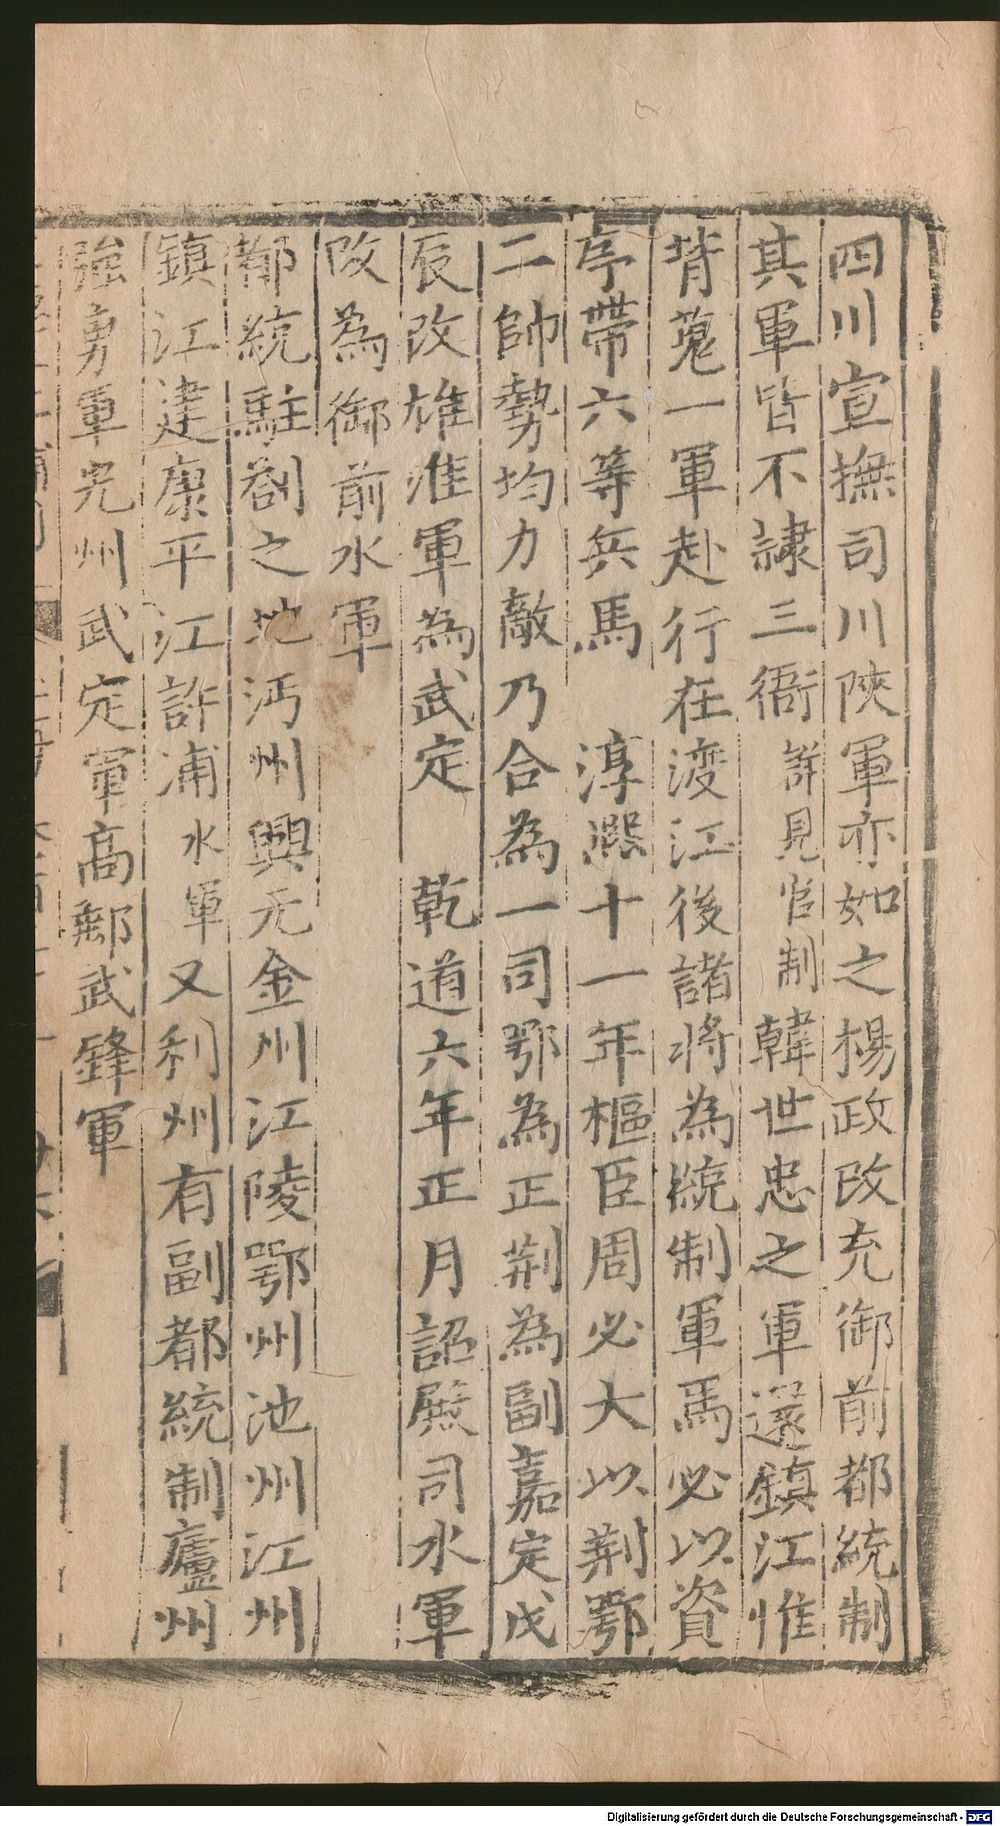 四川宣撫司川陝軍亦如之楊政改充御前都統制
其軍皆不隷三衙詳見官制韓世忠之軍還鎮江惟
背嵬一軍赴行在渡江後諸將為統制軍馬必以資
序帶六等兵馬　淳熙十一年樞臣周必大以荆鄂
二帥勢均力敵乃合為一司鄂為正荆為副嘉定戊
辰改雄淮軍為武定　乾道六年正月詔殿司水軍
改為御前水軍
都統駐劄之地沔州興元金州江陵鄂州池州江州
鎮江建康平江許浦水軍又利州有副都統制廬州
強勇軍光州武定軍高郵武鋒軍
Digitalisierung gefördert durch die Deutsche Forschungsgemeinschaft - DFG